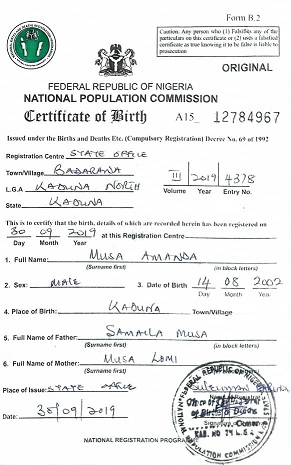 Form B.2
Caution: Any person who (1) Falsifies any of the
particulars on this certificate or (2) uses a falsified
certificate as true knowing it to be false is liable to
prosecution
ORIGINAL
FEDERAL REPUBLIC OF NIGERIA
NATIONAL POPULATION COMMISSION
Certificate of Birth A15 12784967
Issued under the Births and Deaths Etc. (Compulsory Registration) Decree No. 69 of 1992
Registration Centre STATE OFFICE
Town/Village BADARAWA III 2019 4378
L.G.A KADUNA NORTH Volume Year Entry No.
State KADUNA
This is to certify that the birth, details of which are recorded herein has been registered on
30 09 2019 at this Registration Centre
Day Month Year
1. Full Name: MUSA AMANDA
(Surname first) (in block letters)
2. Sex: MALE 3. Date of Birth 14 08 2002
Day Month Year
4. Place of Birth: KADUNA Town/Village
5. Full Name of Father: SAMAILA MUSA
(Surname first) (in block letters)
6. Full Name of Mother: MUSA LAMI
(Surname first) (in block letters)
Place of Issue: STATE OFFICE
Date: 30/09/2019
NATIONAL REGISTRATION